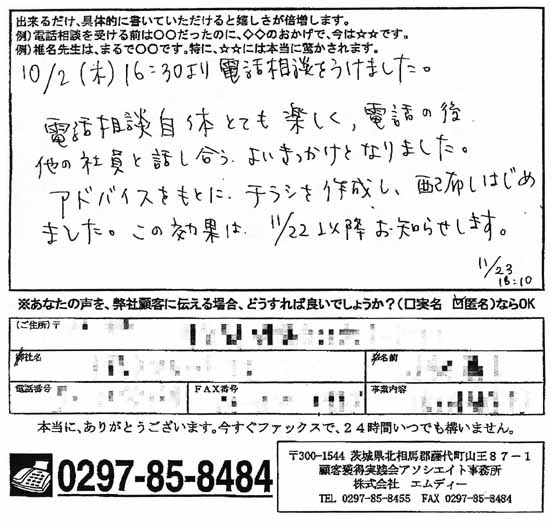 出来るだけ、具体的に書いていただけると嬉しさが倍増します。
例）電話相談を受ける前は〇〇だったのに、◇◇のおかげで、今は☆☆です。
例）椎名先生は、まるで〇〇です。特に、☆☆には本当に驚かされます。
10/2（木）16:30より電話相談をうけました。
電話相談自体とても楽しく、電話の後
他の社員と話し合う、よいきっかけとなりました。
アドバイスをもとに、チラシを作成し、配布しはじめ
ました。この効果は、11/22以降お知らせします。
11/23
18:10
※あなたの声を、弊社顧客に伝える場合、どうすれば良いでしょうか？（□実名 ☑匿名）ならOK
（ご住所）〒
御社名
お名前
電話番号
FAX番号
事業内容
本当に、ありがとうございます。今すぐファックスで、24時間いつでも構いません。
0297-85-8484
〒300-1544 茨城県北相馬郡藤代町山王87-1
顧客獲得実践会アソシエイト事務所
株式会社 エムディー
TEL 0297-85-8455 FAX 0297-85-8484